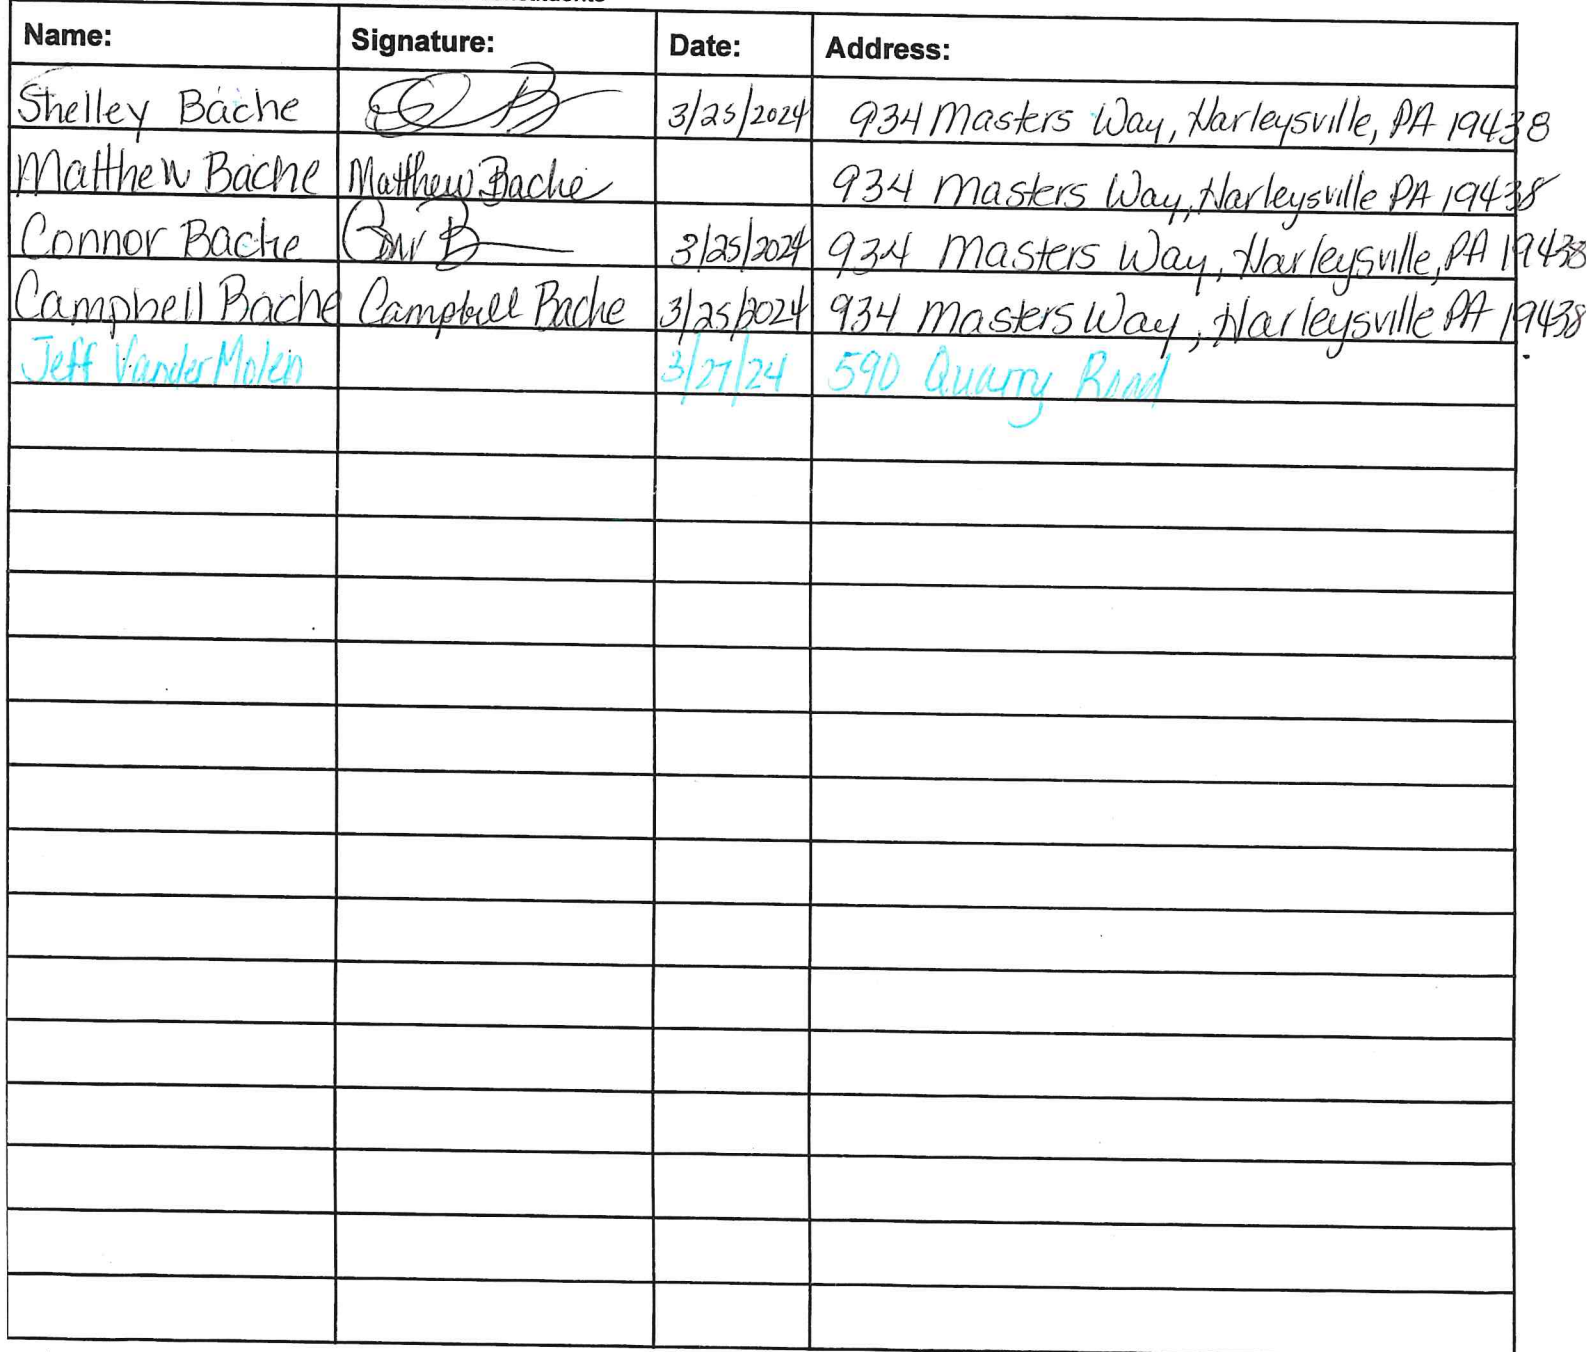 Name: Signature: Date: Address:
Shelley Bache 3/25/2024 934 Masters Way, Harleysville, PA 19438
Matthew Bache Matthew Bache 934 Masters Way, Harleysville PA 19438
Connor Bache 3/25/2024 934 Masters Way, Harleysville, PA 19438
Campbell Bache Campbell Bache 3/25/2024 934 Masters Way, Harleysville PA 19438
Jeff VanderMolen 3/27/24 590 Quarry Road